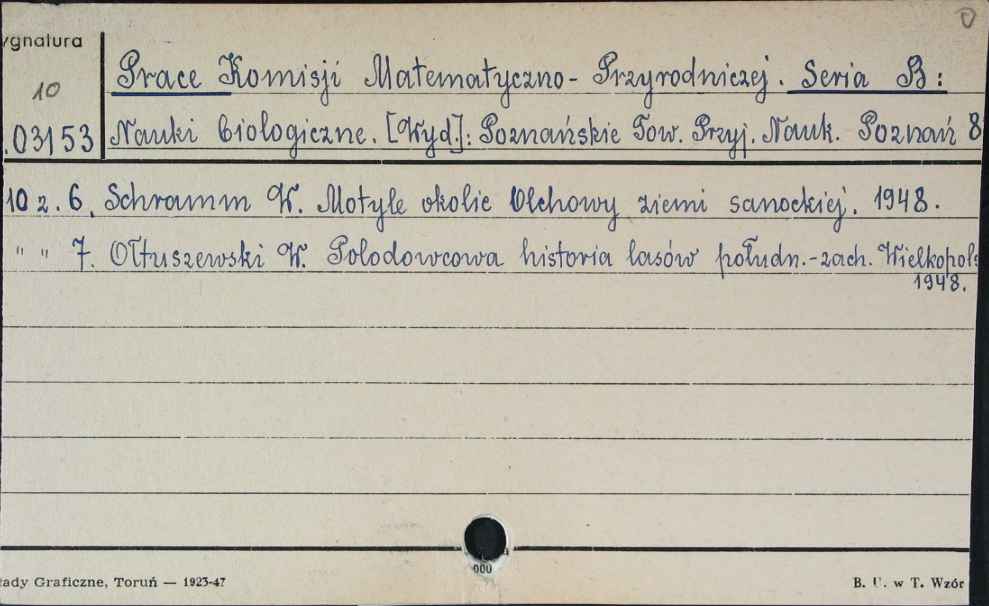 ygnatura
10
.03153
Prace Komisji Matematyczno-Przyrodniczej. Seria B:
Nauki biologiczne. [Wyd.]: Poznańskie Tow. Przyj. Nauk. Poznań 8
10 z. 6. Schramm W. Motyle okolic Olchowy ziemi sanockiej. 1948.
" " 7. Ołtuszewski W. Polodowcowa historia lasów połudn.-zach. Wielkopols
1948.
000
łady Graficzne, Toruń — 1923-47
B. U. w T. Wzór